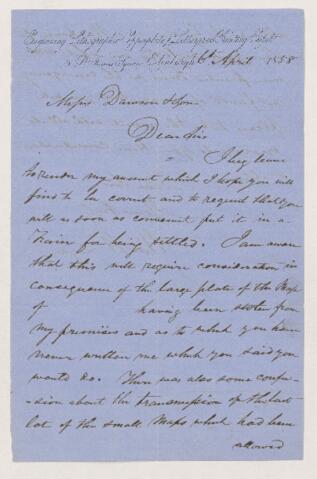 Engraving Lithographic Copperplate & Letterpress Printing
St. Andrew Square Edinburgh 6th April 1858
Messrs Dawson & Son
Dear Sirs
I beg leave
to render my account which I hope you will
find to be correct and to request that you
will as soon as convenient put it in a
Train for being settled. I am aware
that this will require consideration in
consequence of the large plate of the Map
of having been stolen from
my premises and as to which you have
never written me which you said you
would do. There was also some confu-
-sion about the transmission of the last
lot of the small Maps which had been
allowed